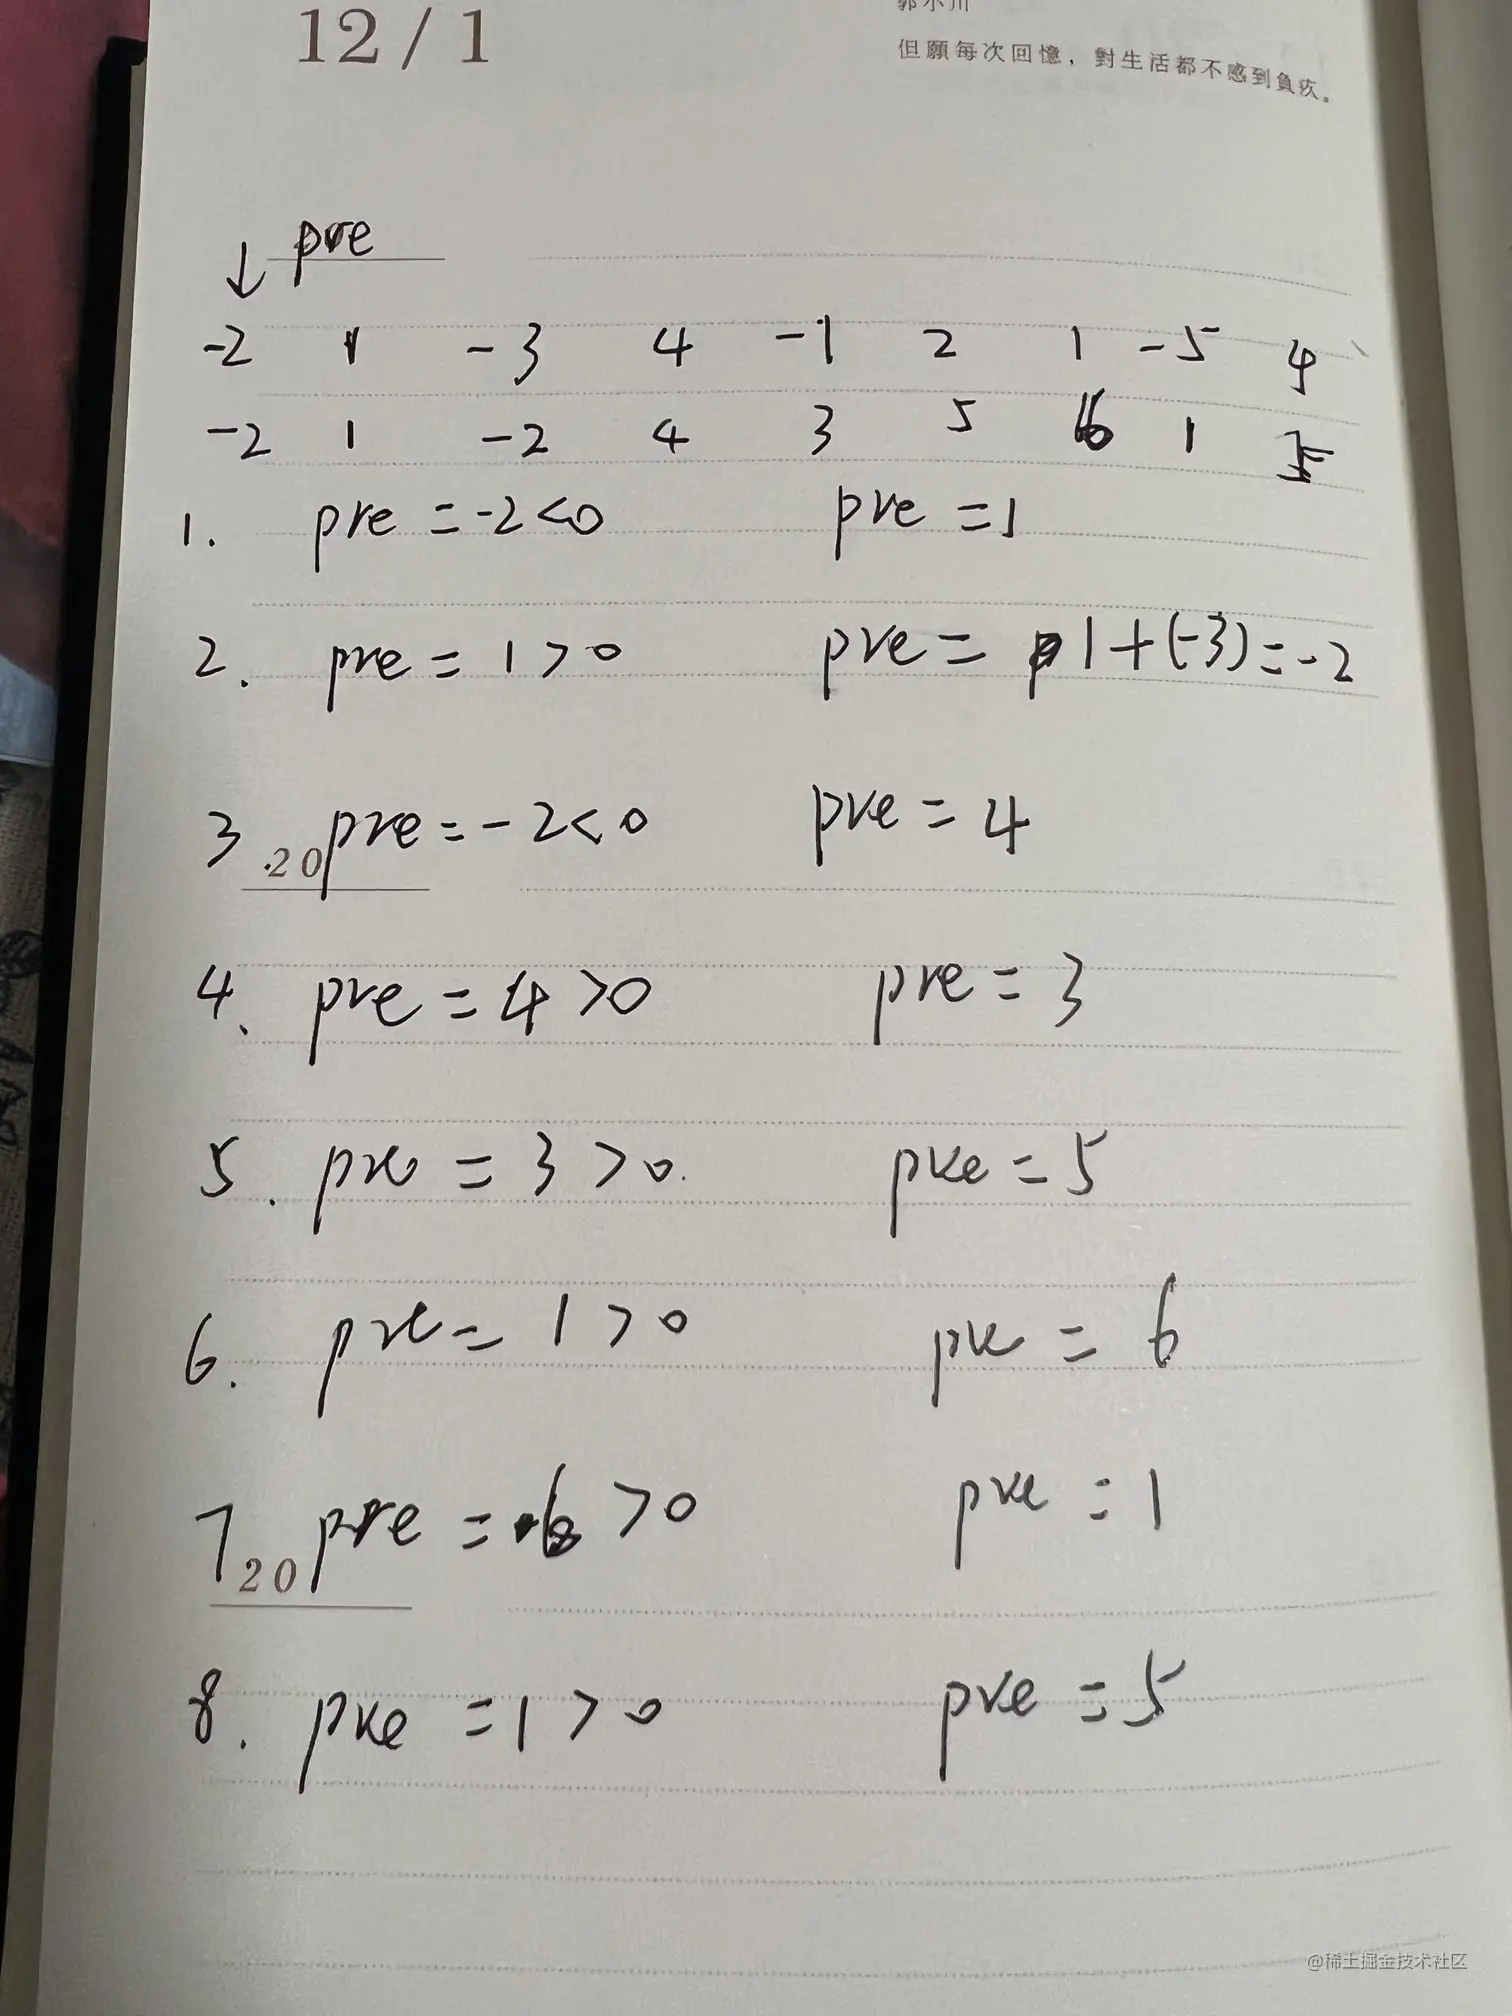 12/1
郭小川
但願每次回憶，對生活都不感到負疚。
pre
↓
-2 1 -3 4 -1 2 1 -5 4
-2 1 -2 4 3 5 6 1 5
1. pre = -2<0 pre = 1
2. pre = 1>0 pre = 1+(-3)=-2
3 pre = -2<0 pre = 4
.20
4. pre = 4>0 pre = 3
5. pre = 3>0. pre = 5
6. pre = 1>0 pre = 6
7 pre = 6>0 pre = 1
20
8. pre = 1>0 pre = 5
@稀土掘金技术社区